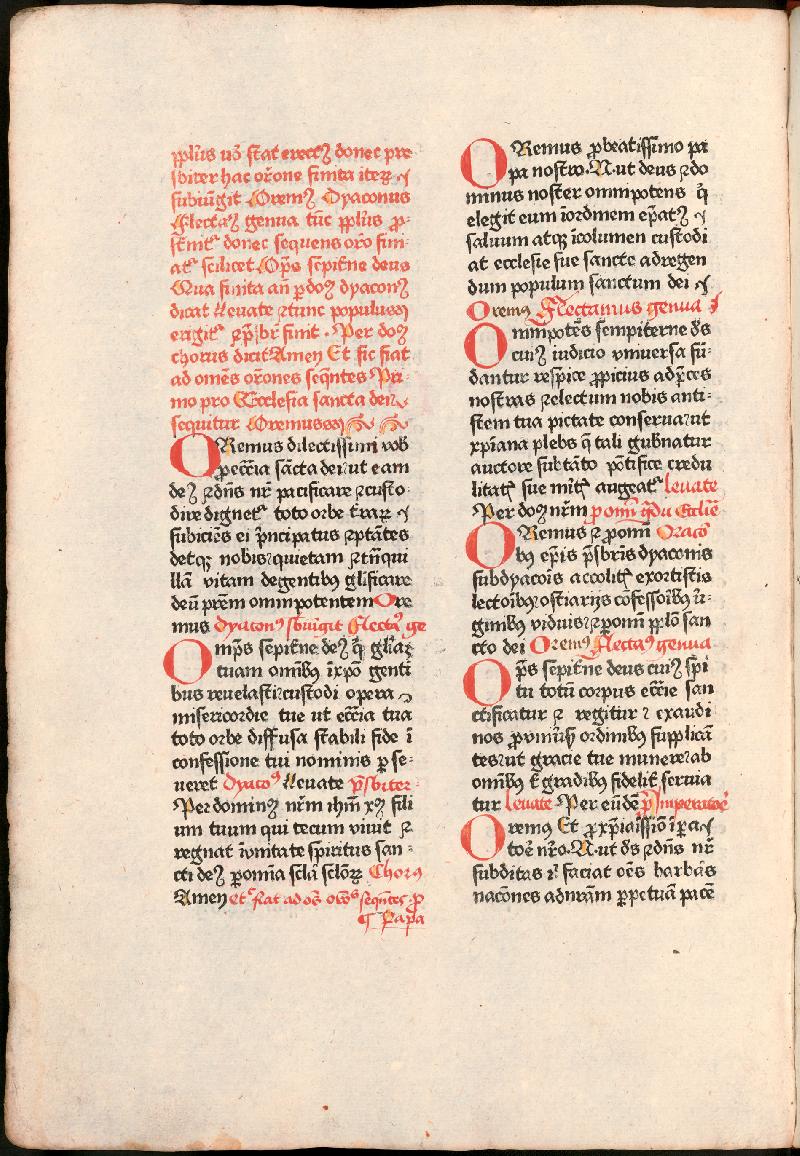 ppl'us v̄o stat erect⁹ donec pre
sbiter hac or̄one finita iteꝝ
subiūgit Orem⁹ Dyaconus
Flecta⁹ genua tūc ppl'us ꝓ-
st̄nit᷑ donec sequens or̄o fini-
at᷑ scilicet Om̄ps sepit̄ne deus
Qua finita añ ꝑ doȝ dyacon⁹
dicat Leuate ⁊ tunc populus
erigit᷑ ⁊ p̄sbr̄ finit. Per doȝ
chorus dicit Amen Et sic fiat
ad om̄es or̄ones seq̄ntes Pri-
mo pro Ecclesia sancta dei
sequitur Oremus
ORemus dilectissimi nob̄
ꝓ ecc̄ia sācta dei ut eam
de⁹ ⁊ dn̄s nr̄ pacificare ⁊ custo-
dire dignet᷑ toto orbe t̄raꝝ
subiciēs ei p̄ncipatus ⁊ ptātes
detqꝫ nobis quietam ⁊ tn̄qui
llā vitam degentibꝰ gl̄ificare
deū pr̄em omnipotentem Ore
mus dyacon⁹ sbiūgit Flecta⁹ ge
Omp̄s sepit̄ne de⁹ q̄ gl'iaꝫ
tuam om̄ibꝰ ī xp̄o genti
bus reuelasti custodi opera
misericordie tue ut ecc̄ia tua
toto orbe diffusa stabili fide ī
confessione tui nominis ꝑse-
ueret dyaco⁹ Leuate p̄sbiter
Per dominꝫ nr̄m ih̄m xp̄ꝫ fili
um tuum qui tecum viuit ⁊
regnat ī vnitate spiritus san-
cti de⁹ ꝑ omnia sc̄la sc̄loꝝ Chor⁹
Amen et sic fiat ad oēs or̄oēs seqn̄tes ꝓ
¶ Papa
ORemus ꝓ beatissimo pa
pa nostro. N. ut deus ⁊ do
minus noster omnipotens q̄
elegit eum ī ordinem ep̄at⁹
saluum atqꝫ īcolumen custodi
at ecclesie sue sancte ad regen
dum populum sanctum dei
Orem⁹ Flectamus genua
Omnipotēs sempiterne d̄s
cui⁹ iudicio vniuersa fū-
dantur respice ꝓpicius ad p̄ces
nostras ⁊ electum nobis anti-
stem tua pietate conserua ut
xp̄iana plebs q̄ tali gubnatur
auctore sub tāto pōtifice credu
litatꝭ sue mītꝭ augeat᷑ leuate
Per doȝ nr̄m
ORemus ⁊ ꝓ om̄i
bꝰ ep̄is p̄sbr̄is dyaconis
subdyacōis accolitꝭ exortistis
lectoībꝰ ostiarijs cōfessoībꝰ v̄i-
ginibꝰ viduis ⁊ ꝓ om̄i pplo san
cto dei Orem⁹ flecta⁹ genua
Op̄s sepit̄ne deus cui⁹ spi
tu totū corpus ecc̄ie san
ctificatur ⁊ regitur exaudi
nos ꝓ vniu̓sꝭ ordinibꝰ supplicā
tes ut gracie tue munere ab
omībꝰ t̄ gradibꝰ fidelit̄ serua
tur leuate Per eūdē ꝓ Imperatoē
Orem⁹ Et ꝓ xp̄iāissīo īꝑa
toē nr̄o. N. ut d̄s ⁊ dn̄s nr̄
subditas il' faciat oēs barbās
nac̄ones ad nr̄am ꝑpetuā pacē